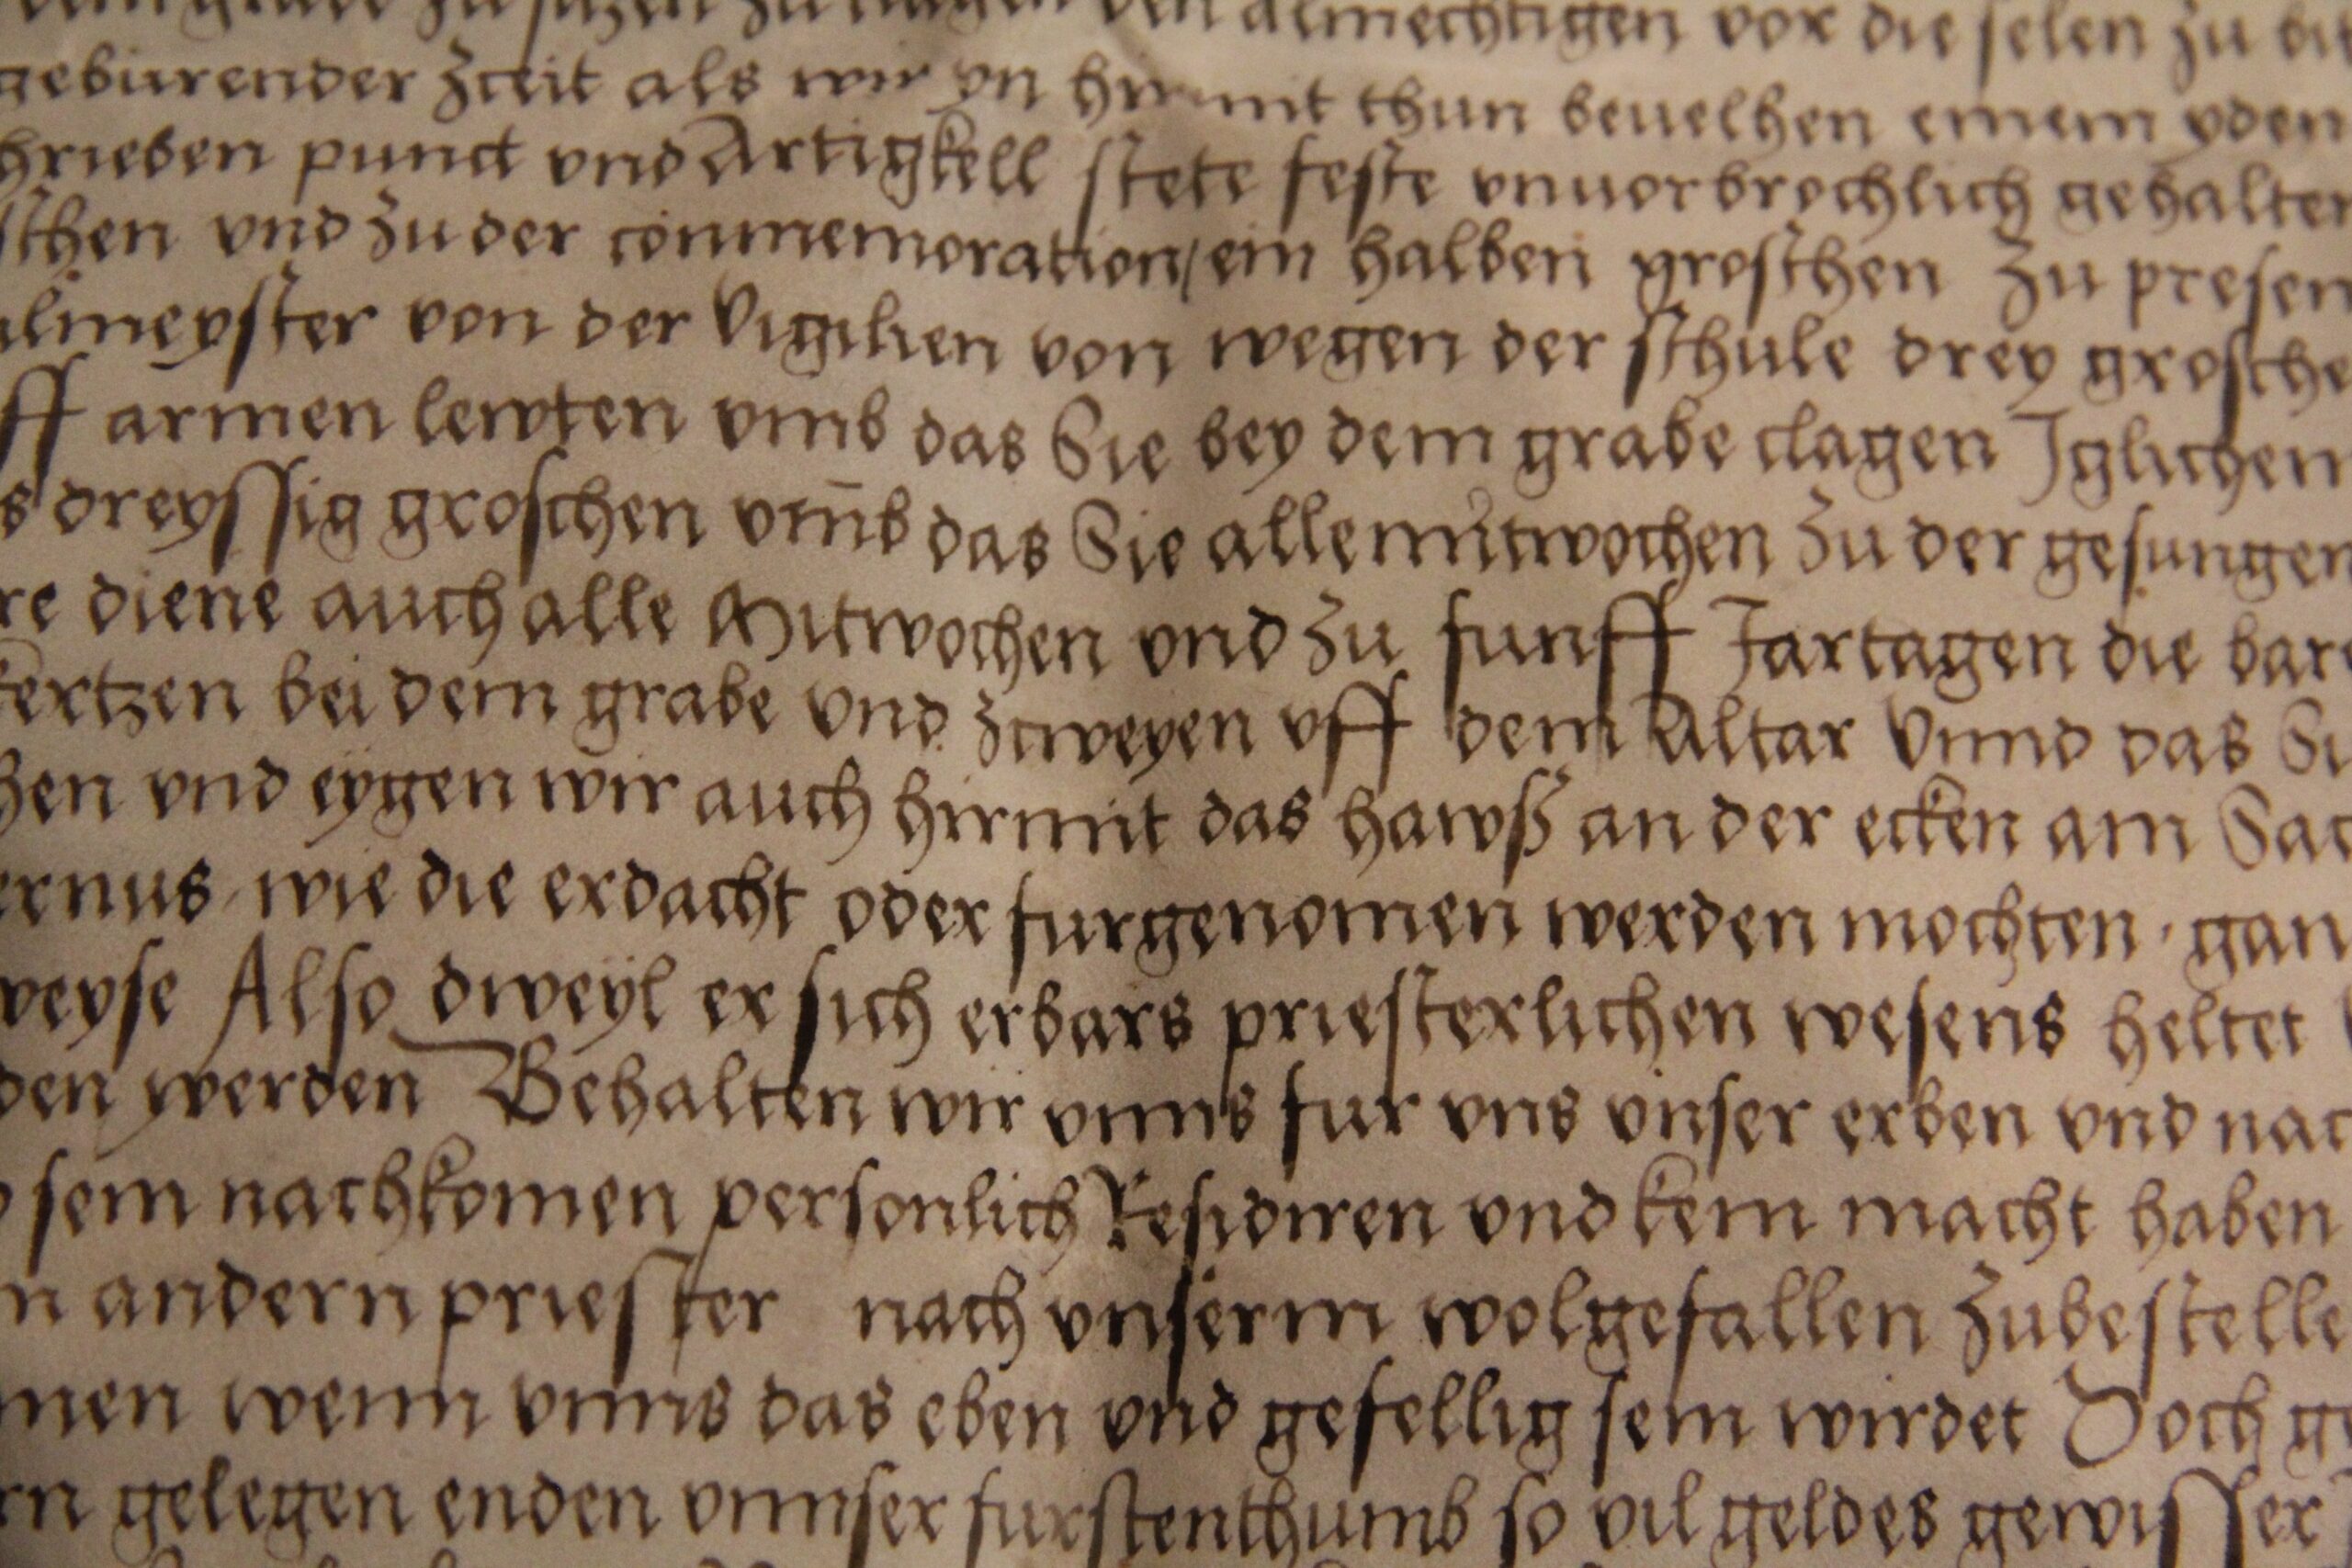 almechtigen vor die selen zu
geburender zceit als wir yn hirmit thun beuelhen einem yden
hrieben punct vnd Artigkell stete feste vnuorbrochlich gehalten
schen vnd zu der conmemoration / ein halben groschen zu presen
lmeyster von der Vigilien von wegen der schule drey grosche
ff armen lewten vmb das Sie bey dem grabe clagen Iglichem
s dreyssig groschen vmb das Sie alle mitwochen zu der gesungen
re diene auch alle Mitwochen vnd zu funff Jartagen die bare
kertzen bei dem grabe vnd zcweyen vff dem Altar Vnnd das Si
hen vnd eygen wir auch hirmit das hawß an der ecken am Sac
ernus, wie die erdacht oder furgenomen werden mochten, gan
weyse Also dweyl er sich erbars priesterlichen wesens heltet
den werden Behalten wir vnns fur vns vnser erben vnd nac
sein nachkomen personlich Residiren vnd kein macht haben
n andern priester nach vnserm wolgefallen zubestelle
men wenn vnns das eben vnd gefellig sein wirdet Doch ge
rn gelegen enden vnnser furstenthumb so vil geldes gewisser